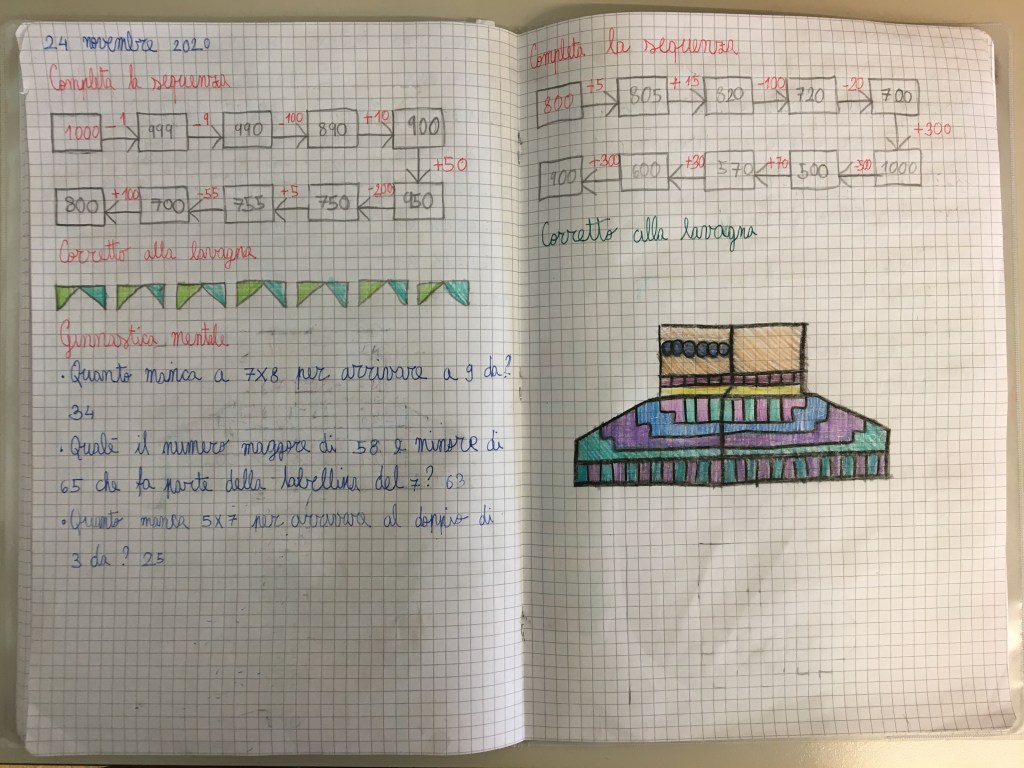 24 novembre 2020
Completa la sequenza
1000 -1 999 -9 990 -100 890 +10 900
+50
800 +100 700 -55 755 +5 750 -200 950
Corretto alla lavagna
Ginnastica mentale
• Quanto manca a 7x8 per arrivare a 9 da?
34
• Qualè il numero maggore di 58 e minore di
65 che fa parte della tabellina del 7? 63
• Quanto manca 5x7 per arrivara al doppio di
3 da? 25
Completa la sequenza
800 +5 805 +15 820 -100 720 -20 700
+300
900 +300 600 +30 570 +70 500 -500 1000
Corretto alla lavagna